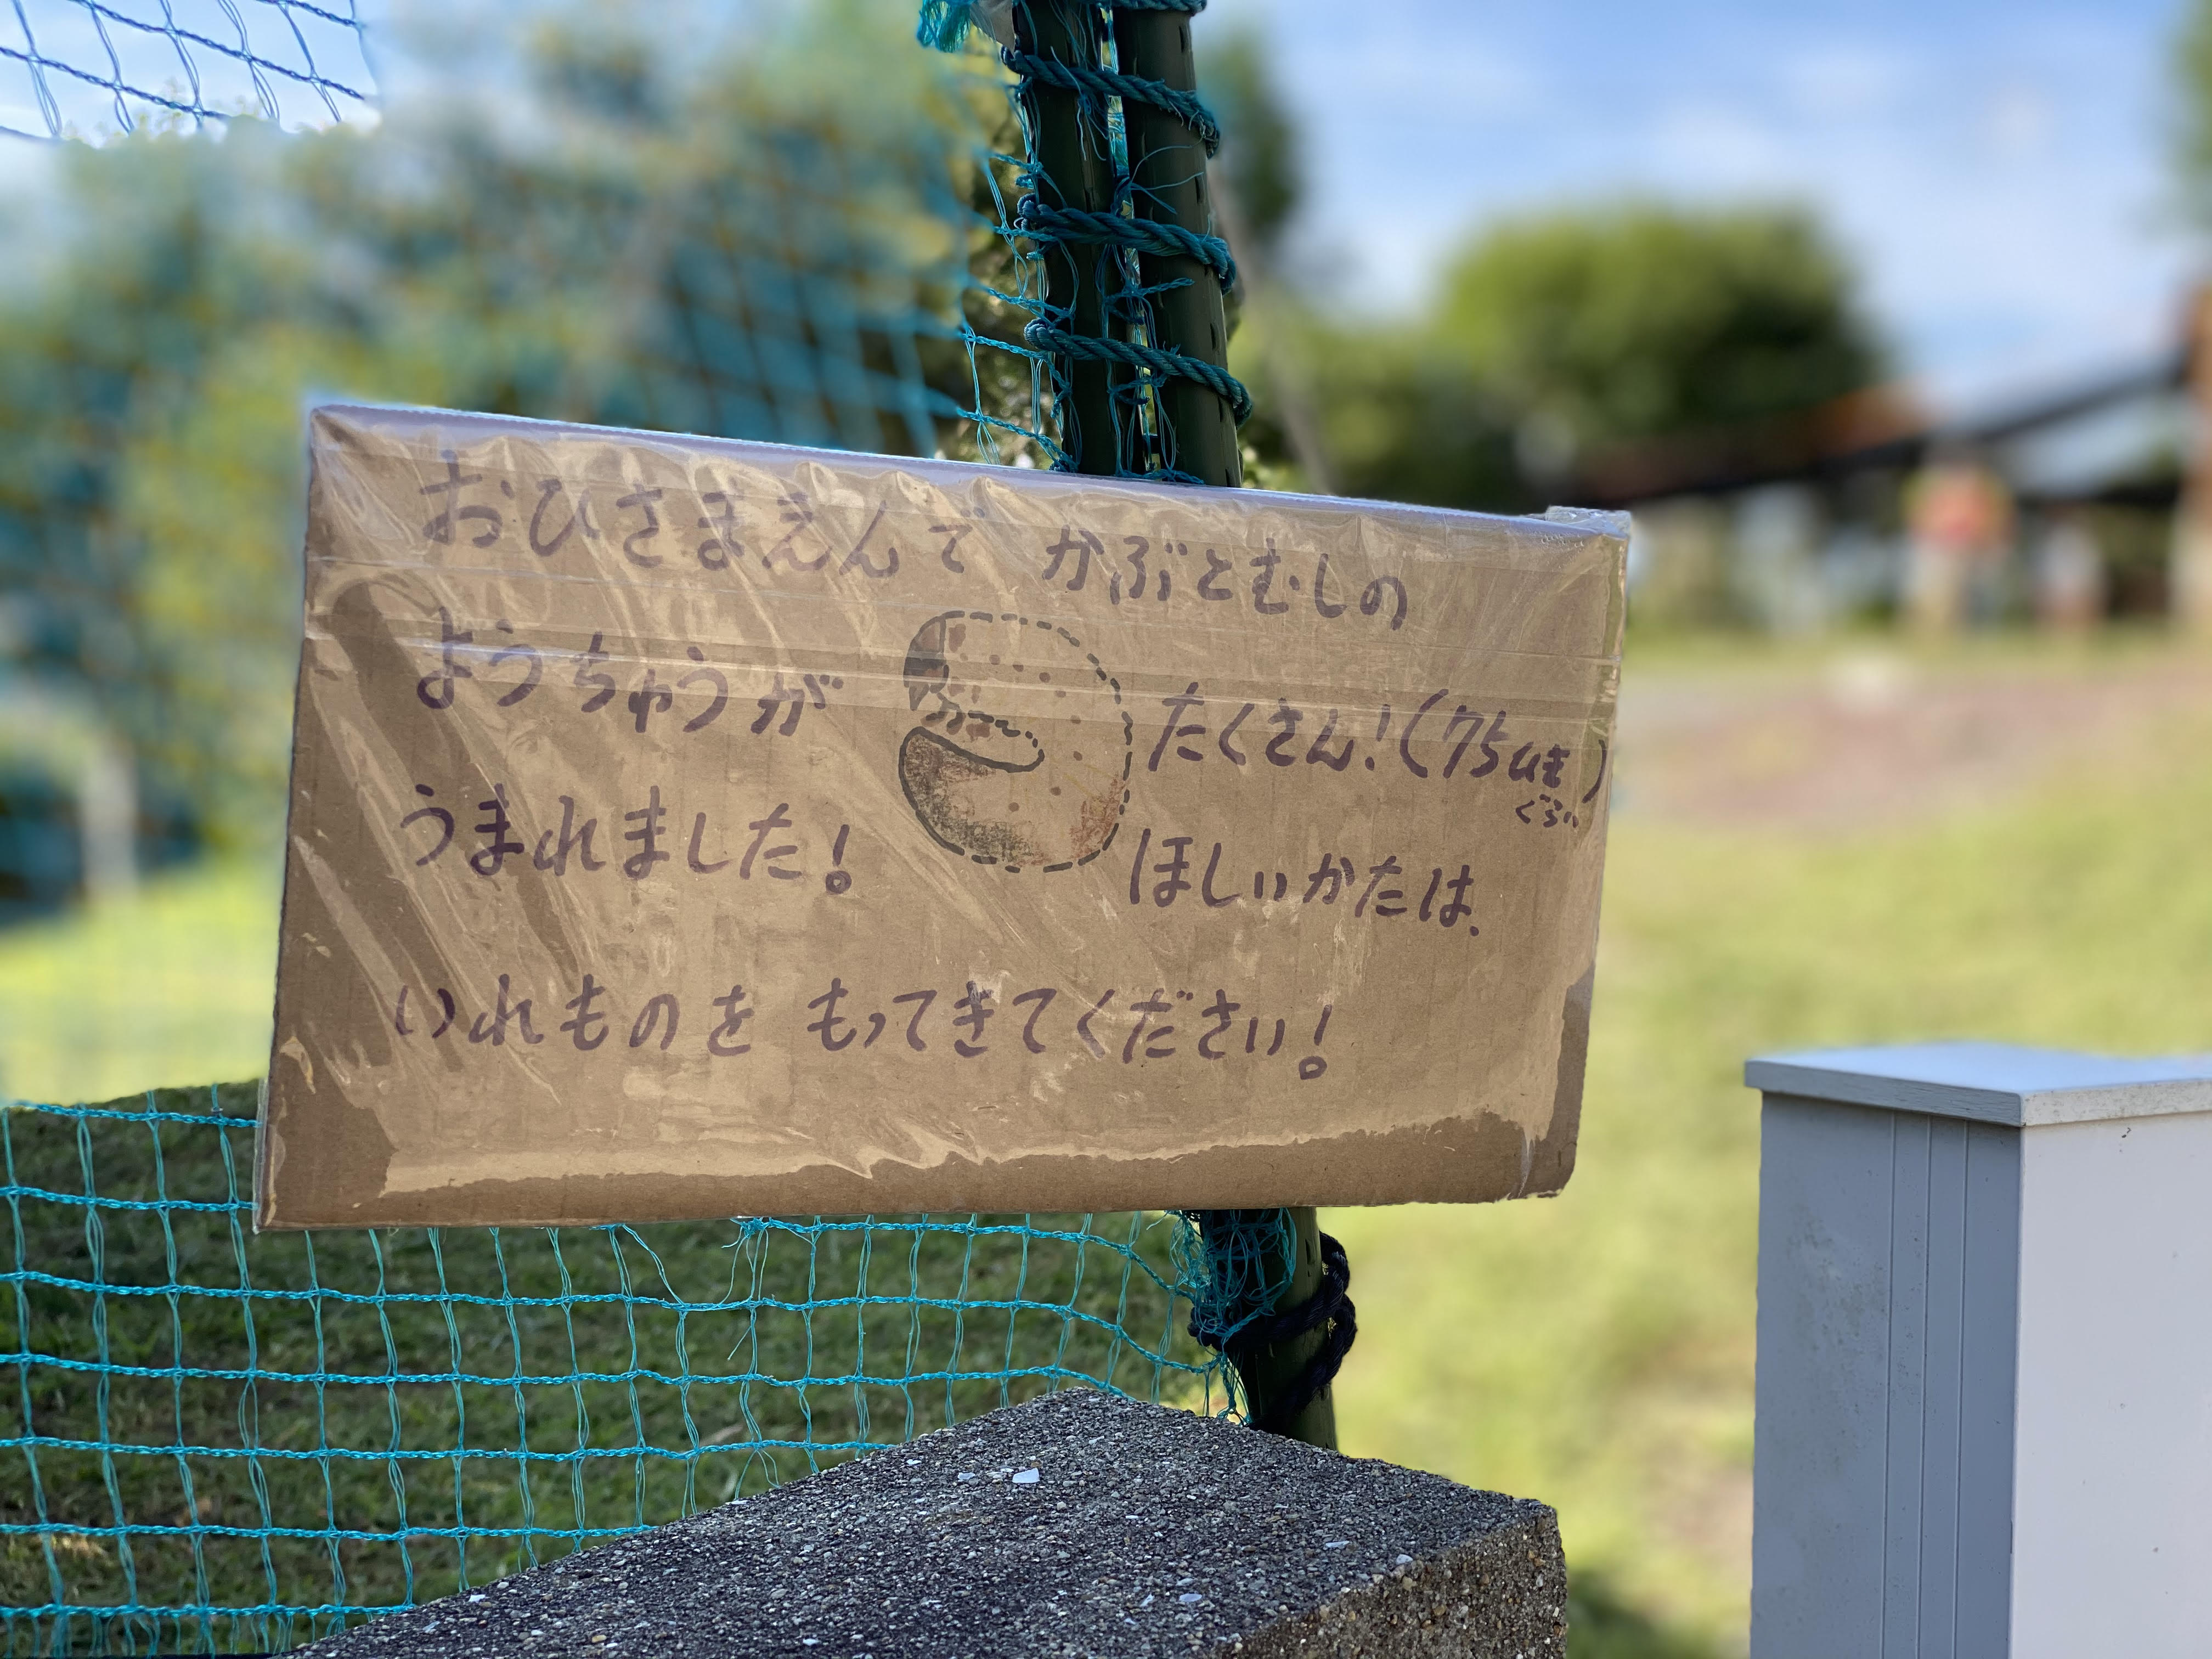 おひさまえんで かぶとむしの
ようちゅうが たくさん!(75ひき)
ぐらい
うまれました! ほしいかたは、
いれものを もってきてください!